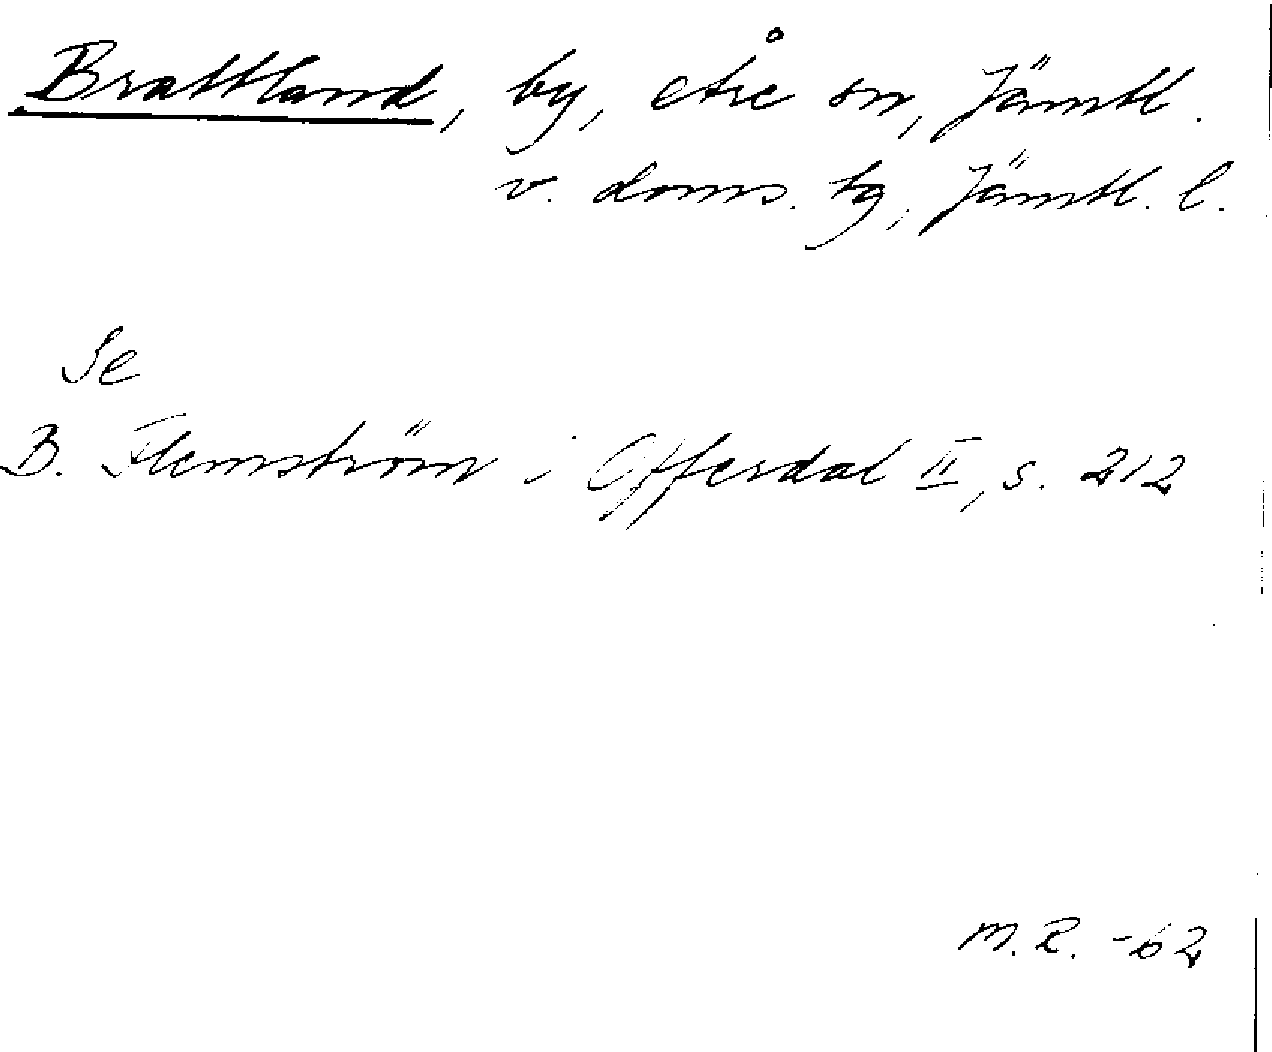 Brattland, by, Åre sn, Jämtl.
v. doms. tg, Jämtl. l.
Se
B. Flemström i Offerdal II, s. 212
M.R. -62